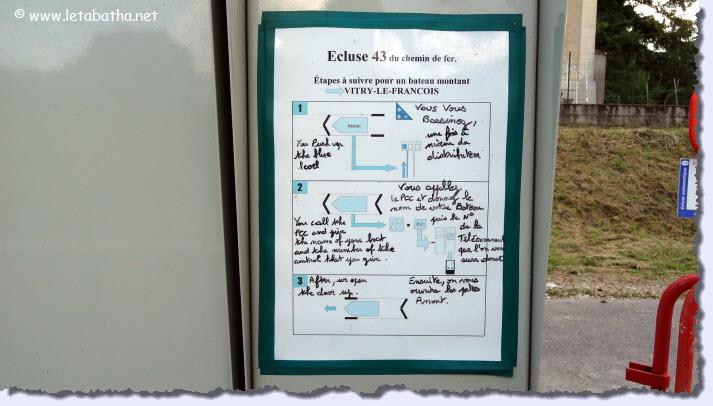 © www.letabatha.net
Ecluse 43 du chemin de fer.
Étapes à suivre pour un bateau montant
VITRY-LE-FRANCOIS
1
Vous Vous
une fois à
niveau du
distributeur
bateau
You Push up
the blue
2
Vous appellez
le PCC et donnez le
nom de votre Bateau
puis le N°
de la
You call the
PCC and give
the name of your boat
and the number of the
control that you give.
P.C
3
After, we open
the door up.
Ensuite, on vous
ouvrira les portes
Amont.